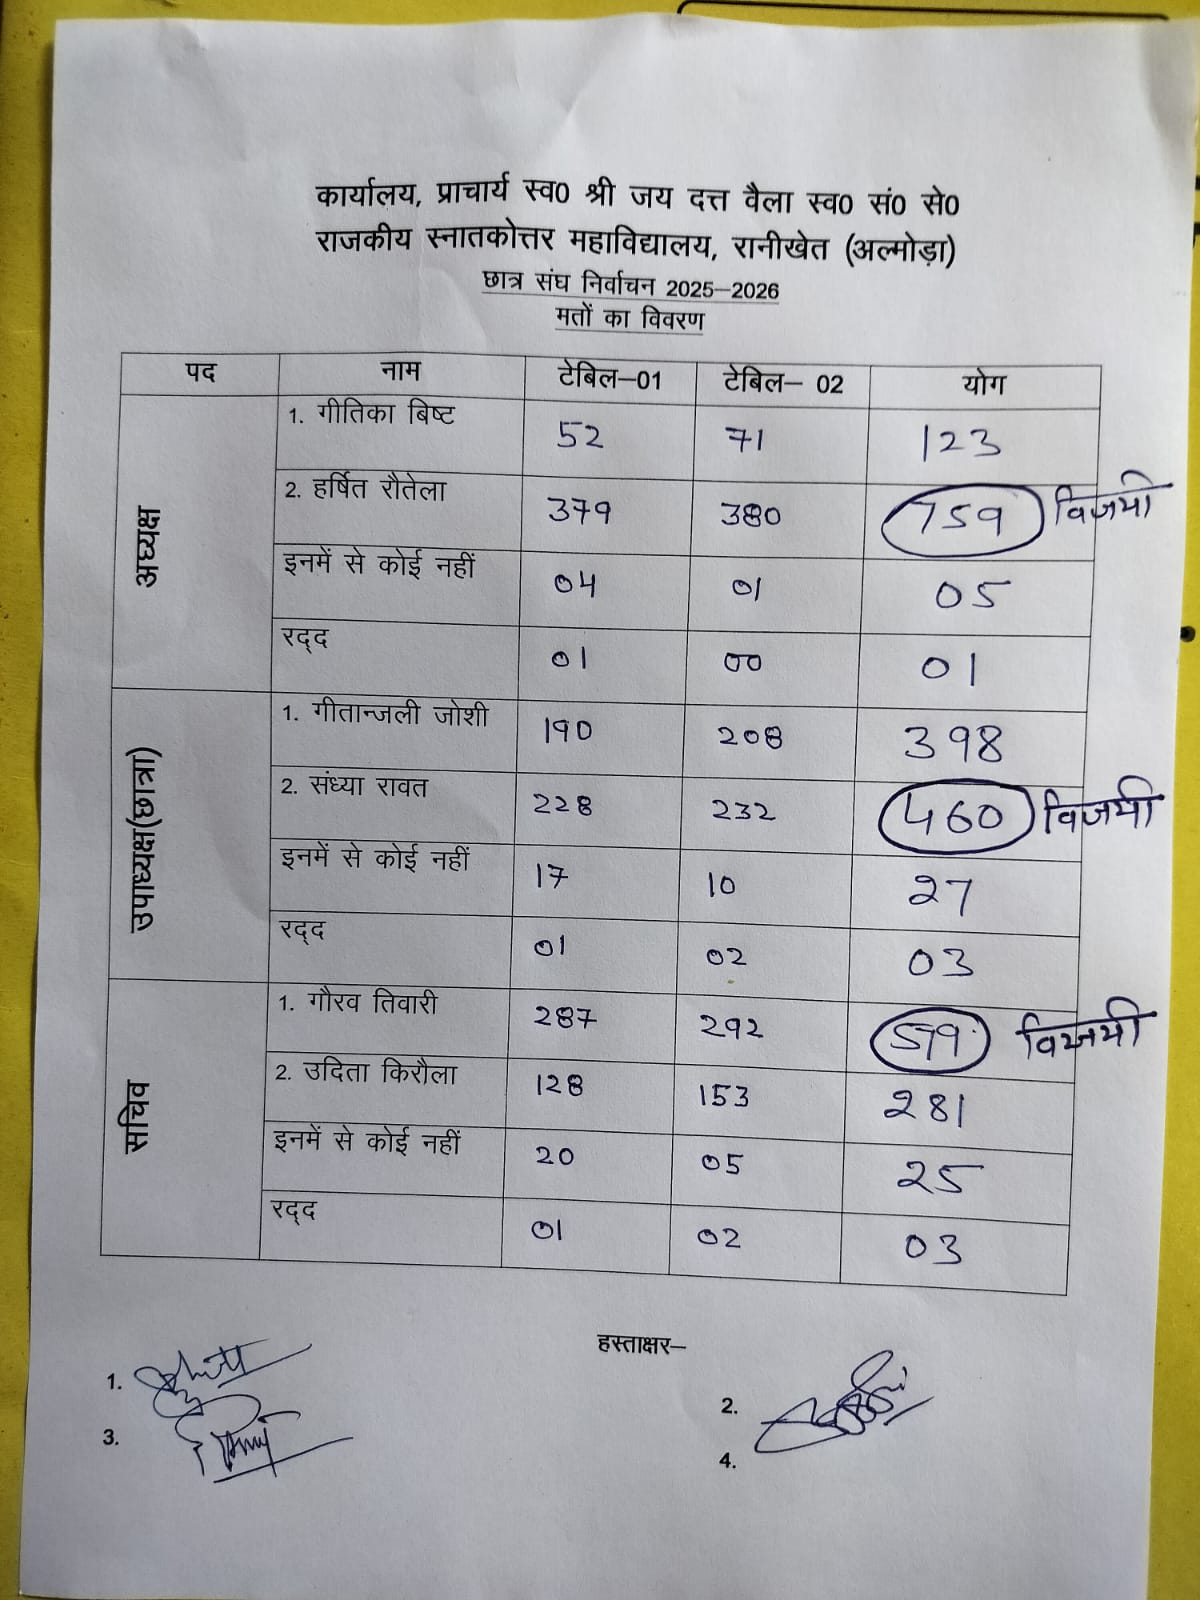 कार्यालय, प्राचार्य स्व0 श्री जय दत्त वैला स्व0 सं0 से0
राजकीय स्नातकोत्तर महाविद्यालय, रानीखेत (अल्मोड़ा)
छात्र संघ निर्वाचन 2025–2026
मतों का विवरण
पद नाम टेबिल–01 टेबिल– 02 योग
अध्यक्ष
1. गीतिका बिष्ट 52 71 123
2. हर्षित रौतेला 379 380 759 विजयी
इनमें से कोई नहीं 04 01 05
रद्द 01 00 01
उपाध्यक्ष(छात्रा)
1. गीतान्जली जोशी 190 208 398
2. संध्या रावत 228 232 460 विजयी
इनमें से कोई नहीं 17 10 27
रद्द 01 02 03
सचिव
1. गौरव तिवारी 287 292 579 विजयी
2. उदिता किरौला 128 153 281
इनमें से कोई नहीं 20 05 25
रद्द 01 02 03
हस्ताक्षर–
1.
2.
3.
4.